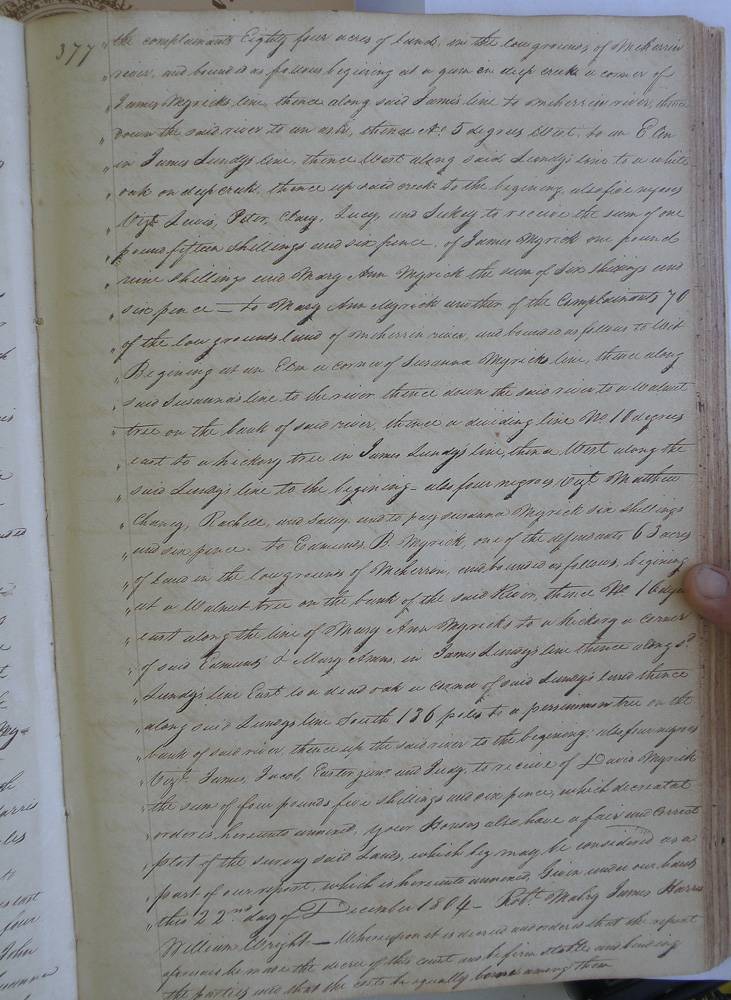 377 " the complainants Eighty four acres of land, in the low grounds of Meherrin
river, and bound as follows begining at a gum on deep creek a corner of
" James Myricks line, thence along said James line to meherrin river, thence
" down the said river to an ash, thence No. 5 degrees West, to an Elm
" in James Lundys line, thence West along said Lundy's line to a white
" oak on deep creek, thence up said creek to the begining, also five negroes
" Vizt. Lewis, Peter, Clary, Lucy, and Sukey to receive the sum of one
" pound fifteen shillings and six pence, of James Myrick one pound
" nine shillings and Mary Ann Myrick the sum of six shillings and
" six pence — to Mary Ann Myrick another of the Complainants 70
" of the low grounds land of meherrin river, and bounded as follows to Wit
" Begining at an Elm a corner of Susanna Myricks line, thence along
" said Susanna's line to the river thence down the said river to a Walnut
" tree on the bank of said river, thence a dividing line No 10 degrees
" east to a hickory tree in James Lundy's line, thence West along the
" said Lundy's line to the begining – also four negroes, Vizt. Matthew
" Chaney, Rachell, and Sally and to pay Susanna Myrick six shillings
" and six pence. to Edmunds B. Myrick, one of the defendants 63 acres
" of Land in the low grounds of Meherron, and bounded as follows, begining
" at a Walnut tree on the bank of the said River, thence No 10 degrees
" east along the line of Mary Ann Myricks to a hickory a corner
" of said Edmunds & Mary Anns, in James Lundy's line thence along sd.
" Lundy's line East to a dead oak a corner of said Lundy's land thence
" along said Lundys line South 136 poles to a persimmon tree on the
" bank of said river, thence up the said river to the begining: also four negroes
" Vizt. James, Jacob, Easter junr and Judy, to receive of David Myrick
" the sum of four pounds five shillings and six pence, which decreatal
" order is hereunto annexed, your Honors also have a fair and correct
" plot of the survey said Lands, which beg may be considered as a
" part of our report, which is hereunto annexed, Given under our hands
" this 22nd. day of December 1804 — Robt. Mabry James Harris
William Wright — Whereupon it is decreed and order is that the report
aforesaid be made the decree of this court and be firm stable and binding
the parties and that the costs be equally borne among them